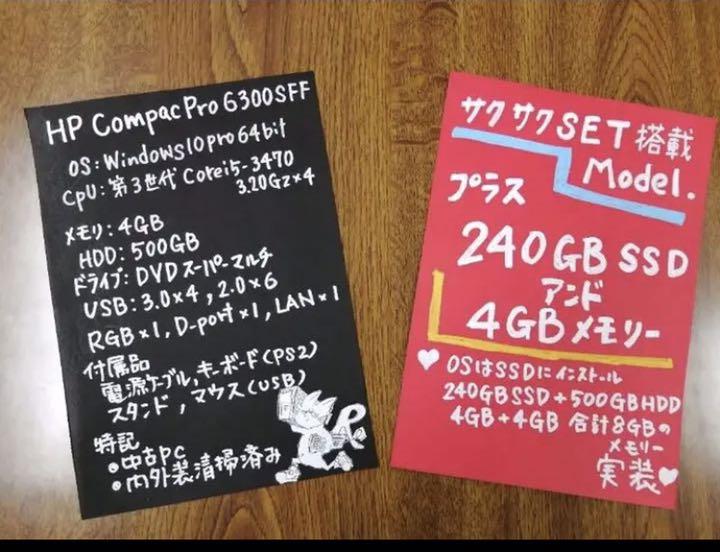 HP CompacPro 6300SFF
OS:Windows10pro64bit
CPU:第3世代 Corei5-3470
3.20Gz×4
メモリ:4GB
HDD:500GB
ドライブ:DVDスーパーマルチ
USB:3.0×4,2.0×6
RGB×1,D-port×1,LAN×1
付属品
電源ケーブル,キーボード(PS2)
スタンド,マウス(USB)
特記
●中古PC
●内外装清掃済み
サクサクSET搭載
Model.
プラス
240GB SSD
アンド
4GBメモリー
♥OSはSSDにインストール
240GBSSD+500GBHDD
4GB+4GB 合計8GBの
メモリー
実装♥